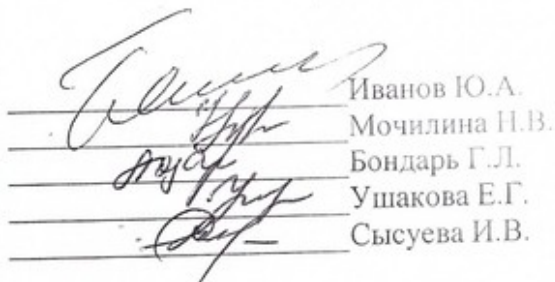 Иванов Ю.А.
Мочилина Н.В.
Бондарь Г.Л.
Ушакова Е.Г.
Сысуева И.В.